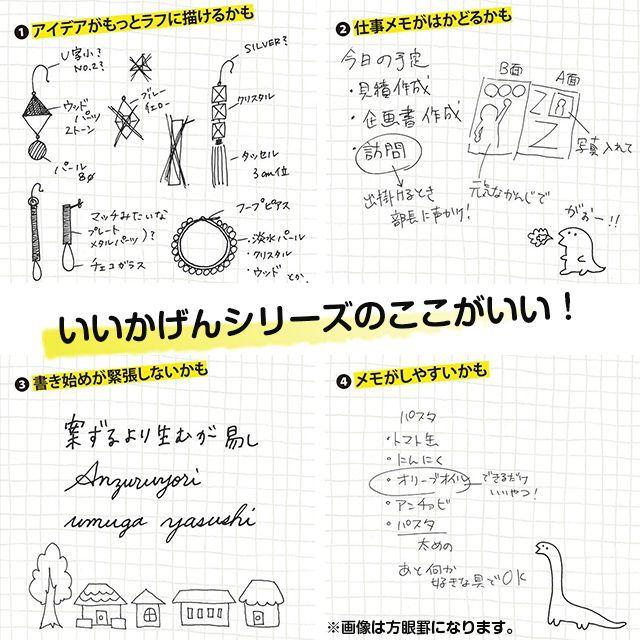 ❶ アイデアがもっとラフに描けるかも
U字小?
No.2?
ウッド
パーツ
2トーン
パール
8φ
ブルー
イエロー
SILVER?
クリスタル
タッセル
3cm位
マッチみたいな
プレート
メタルパーツ)?
チェコガラス
フープピアス
・淡水パール
・クリスタル
・ウッド とか
❷ 仕事メモがはかどるかも
今日の予定
・見積作成
・企画書作成
・訪問
出掛けるとき
部長に声かけ!
B面
A面
写真入れて
元気なかんじで
がおー!!
いいかげんシリーズのここがいい！
❸ 書き始めが緊張しないかも
案ずるより生むが易し
Anzuruyori
umuga yasushi
❹ メモがしやすいかも
パスタ
・トマト缶
・にんにく
・オリーブオイル
できるだけ
いいやつ!
・アンチョビ
・パスタ
太めの
あと何か
好きな具でOK
※画像は方眼罫になります。